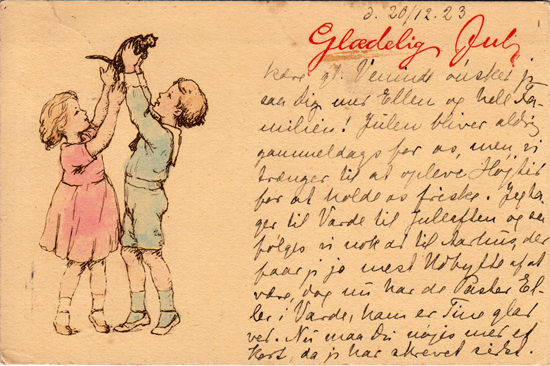 d. 20/12.23
Glædelig Jul,
kære gl. Veninde ønsker jeg
saa dig, min Ellen og hele Fa-
milien! Julen bliver aldrig
gammeldags for os, men vi
trænger til at opleve Højtid
for at holde os friske. Jeg ta-
ger til Varde til Juleaften og
følges vi nok ad til Aarhus, der
faar jeg jo mest Udbytte af at
være, dog nu har de Pastor El-
ler i Varde, ham er Tine glad
ved. Nu maa Du nøjes med et
Kort, da jeg har skrevet sidst.